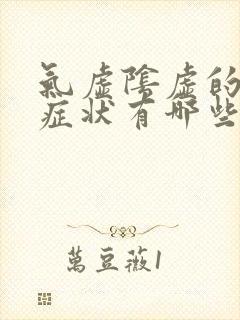 氣虛陰虛的
症狀有哪些
萬豆薇1